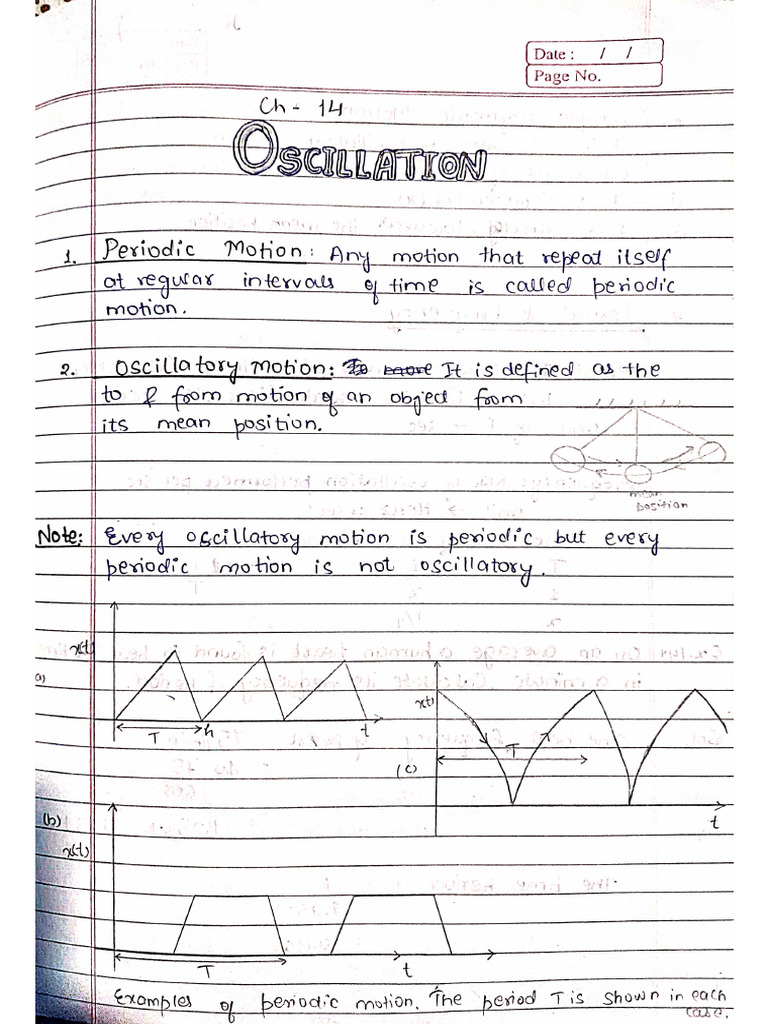 Date : / /
Page No.
Ch - 14
OSCILLATION
1. Periodic Motion: Any motion that repeat itself
at regular intervals of time is called periodic
motion.
2. Oscillatory Motion: It is defined as the
to & from motion of an object from
its mean position.
mean
position
Note: Every oscillatory motion is periodic but every
periodic motion is not oscillatory.
x(t)
a)
T h t
x(t)
T
(c)
t
(b)
x(t)
T t
Examples of periodic motion. The period T is shown in each
case.